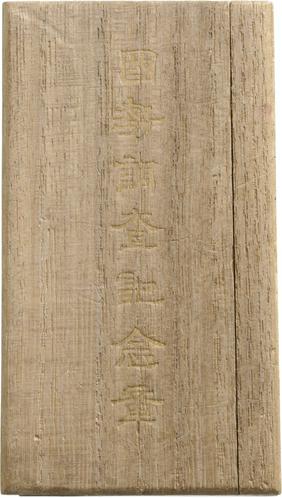 國勢調査記念章